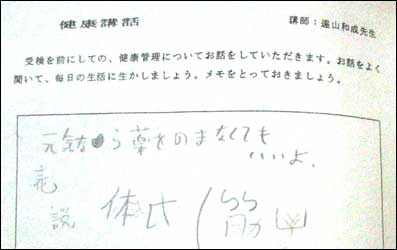 健康講話
講師：遠山和成先生
受検を前にしての、健康管理についてお話をしていただきます。お話をよく
聞いて、毎日の生活に生かしましょう。メモをとっておきましょう。
元気なら薬をのまなくても
いいよ.
説 体